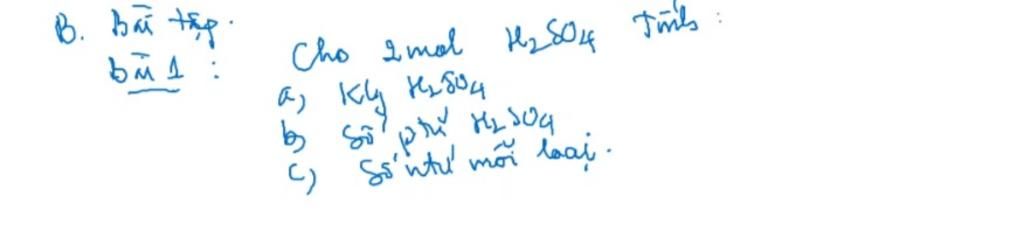 B. Bài tập.
bài 1 : Cho 2 mol H₂SO₄ Tính :
a, Klg H₂SO₄
b, Số ptử H₂SO₄
c, Số ntử mỗi loại.